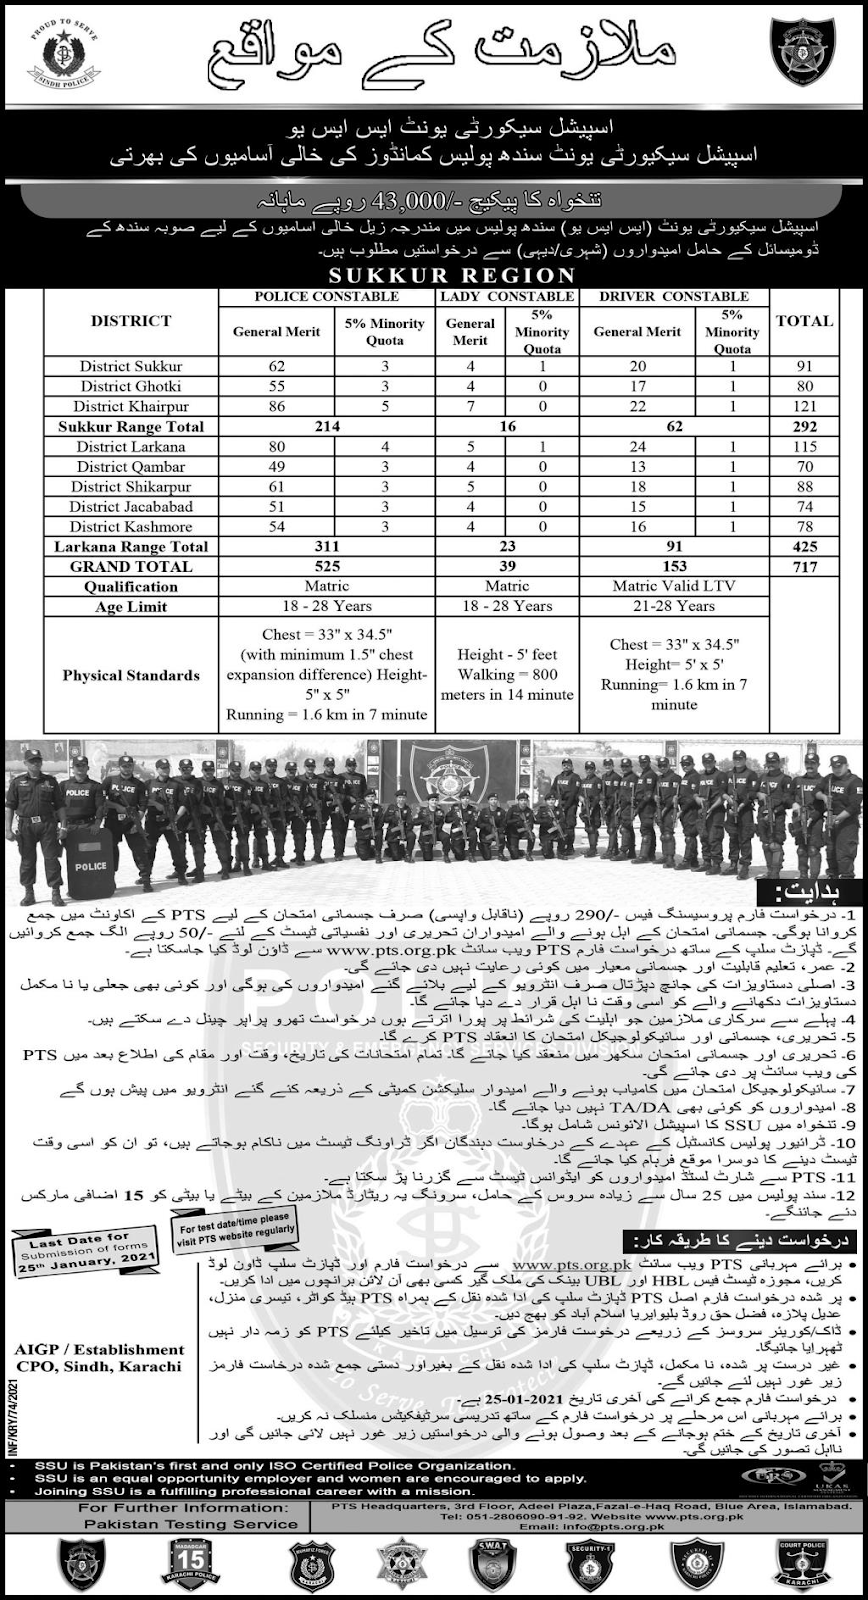 PROUD TO SERVE
SINDH POLICE
ملازمت کے مواقع
اسپیشل سیکورٹی یونٹ ایس ایس یو
اسپیشل سیکیورٹی یونٹ سندھ پولیس کمانڈوز کی خالی آسامیوں کی بھرتی
تنخواہ کا پیکیج -/43,000 روپے ماہانہ
اسپیشل سیکیورٹی یونٹ (ایس ایس یو) سندھ پولیس میں مندرجہ زیل خالی اسامیوں کے لیے صوبہ سندھ کے
ڈومیسائل کے حامل امیدواروں (شہری/دیہی) سے درخواستیں مطلوب ہیں۔
SUKKUR REGION
DISTRICT POLICE CONSTABLE LADY CONSTABLE DRIVER CONSTABLE TOTAL
General Merit 5% Minority Quota General Merit 5% Minority Quota General Merit 5% Minority Quota
District Sukkur 62 3 4 1 20 1 91
District Ghotki 55 3 4 0 17 1 80
District Khairpur 86 5 7 0 22 1 121
Sukkur Range Total 214 16 62 292
District Larkana 80 4 5 1 24 1 115
District Qambar 49 3 4 0 13 1 70
District Shikarpur 61 3 5 0 18 1 88
District Jacababad 51 3 4 0 15 1 74
District Kashmore 54 3 4 0 16 1 78
Larkana Range Total 311 23 91 425
GRAND TOTAL 525 39 153 717
Qualification Matric Matric Matric Valid LTV
Age Limit 18 - 28 Years 18 - 28 Years 21-28 Years
Physical Standards
Chest = 33" x 34.5"
(with minimum 1.5" chest
expansion difference) Height-
5" x 5"
Running = 1.6 km in 7 minute
Height - 5' feet
Walking = 800
meters in 14 minute
Chest = 33" x 34.5"
Height= 5' x 5'
Running= 1.6 km in 7
minute
POLICE
ہدایت:
1- درخواست فارم پروسیسنگ فیس -/290 روپے (ناقابل واپسی) صرف جسمانی امتحان کے لیے PTS کے اکاونٹ میں جمع
کروانا ہوگی۔ جسمانی امتحان کے اہل ہونے والے امیدواران تحریری اور نفسیاتی ٹیسٹ کے لئے -/50 روپے الگ جمع کروائیں
گے۔ ڈپازٹ سلپ کے ساتھ درخواست فارم PTS ویب سائٹ www.pts.org.pk سے ڈاؤن لوڈ کیا جاسکتا ہے۔
2- عمر، تعلیم قابلیت اور جسمانی معیار میں کوئی رعایت نہیں دی جائے گی۔
3- اصلی دستاویزات کی جانچ دپڑتال صرف انٹرویو کے لیے بلائے گئے امیدواروں کی ہوگی اور کوئی بھی جعلی یا نا مکمل
دستاویزات دکھانے والے کو اسی وقت نا اہل قرار دے دیا جائے گا۔
4- پہلے سے سرکاری ملازمین جو اہلیت کی شرائط پر پورا اترتے ہوں درخواست تھرو پراپر چینل دے سکتے ہیں۔
5- تحریری، جسمانی اور سائیکولوجیکل امتحان کا انعقاد PTS کرے گا۔
6- تحریری اور جسمانی امتحان سکھر میں منعقد کیا جائے گا۔ تمام امتحانات کی تاریخ، وقت اور مقام کی اطلاع بعد میں PTS
کی ویب سائٹ پر دی جائے گی۔
7- سائیکولوجیکل امتحان میں کامیاب ہونے والے امیدوار سلیکشن کمیٹی کے ذریعہ کئے گئے انٹرویو میں پیش ہوں گے
8- امیدواروں کو کوئی بھی TA/DA نہیں دیا جائے گا۔
9- تنخواہ میں SSU کا اسپیشل الائونس شامل ہوگا۔
10- ڈرائیور پولیس کانسٹبل کے عہدے کے درخاوست دہندگان اگر ڈراونگ ٹیسٹ میں ناکام ہوجاتے ہیں، تو ان کو اسی وقت
ٹیسٹ دینے کا دوسرا موقع فرہام کیا جائے گا۔
11- PTS سے شارٹ لسٹڈ امیدواروں کو ایڈوانس ٹیسٹ سے گزرنا پڑ سکتا ہے۔
12- سند پولیس میں 25 سال سے زیادہ سروس کے حامل، سرونگ یہ ریٹارڈ ملازمین کے بیٹے یا بیٹی کو 15 اضافی مارکس
دئے جائنگے۔
SECURITY & EMERGENCY SERVICES DIVISION
KARACHI
To Serve, To Protect
Last Date for
Submission of forms
25th January, 2021
For test date/time please
visit PTS website regularly
درخواست دینے کا طریقہ کار:
• برائے مہربانی PTS ویب سائٹ www.pts.org.pk سے درخواست فارم اور ڈپازٹ سلپ ڈاون لوڈ
کریں، مجوزہ ٹیسٹ فیس HBL اور UBL بینک کی ملک گیر کسی بھی آن لائن برانچوں میں ادا کریں۔
• پر شدہ درخواست فارم اصل PTS ڈپازٹ سلپ کی ادا شدہ نقل کے ہمراہ PTS ہیڈ کوائٹر، تیسری منزل،
عدیل پلازہ، فضل حق روڈ بلیوایریا اسلام آباد کو بھج دیں۔
• ڈاک/کوریئر سروسز کے زریعے درخوست فارمز کی ترسیل میں تاخیر کیلئے PTS کو زمہ دار نہیں
ٹھہرایا جائیگا۔
• غیر درست پر شدہ، نا مکمل، ڈپازٹ سلپ کی ادا شدہ نقل کے بغیراور دستی جمع شدہ درخاست فارمز
زیر غور نہیں لئے جائیں گے۔
• درخواست فارم جمع کرانے کی آخری تاریخ 25-01-2021 ہے
• برائے مہربانی اس مرحلے پر درخواست فارم کے ساتھ تدریسی سرٹیفکیٹس منسلک نہ کریں۔
• آخری تاریخ کے ختم ہوجانے کے بعد وصول ہونے والی درخواستیں زیر غور نہیں لائی جائیں گی اور
نااہل تصور کی جائیں گی۔
AIGP / Establishment
CPO, Sindh, Karachi
INF/KRY/74/2021
• SSU is Pakistan's first and only ISO Certified Police Organization.
• SSU is an equal opportunity employer and women are encouraged to apply.
• Joining SSU is a fulfilling professional career with a mission.
UKAS
For Further Information:
Pakistan Testing Service
PTS Headquarters, 3rd Floor, Adeel Plaza,Fazal-e-Haq Road, Blue Area, Islamabad.
Tel: 051-2806090-91-92, Website www.pts.org.pk
Email: info@pts.org.pk
MADADGAR
15
KARACHI POLICE
S.W.A.T
SECURITY-1
COURT POLICE
KARACHI